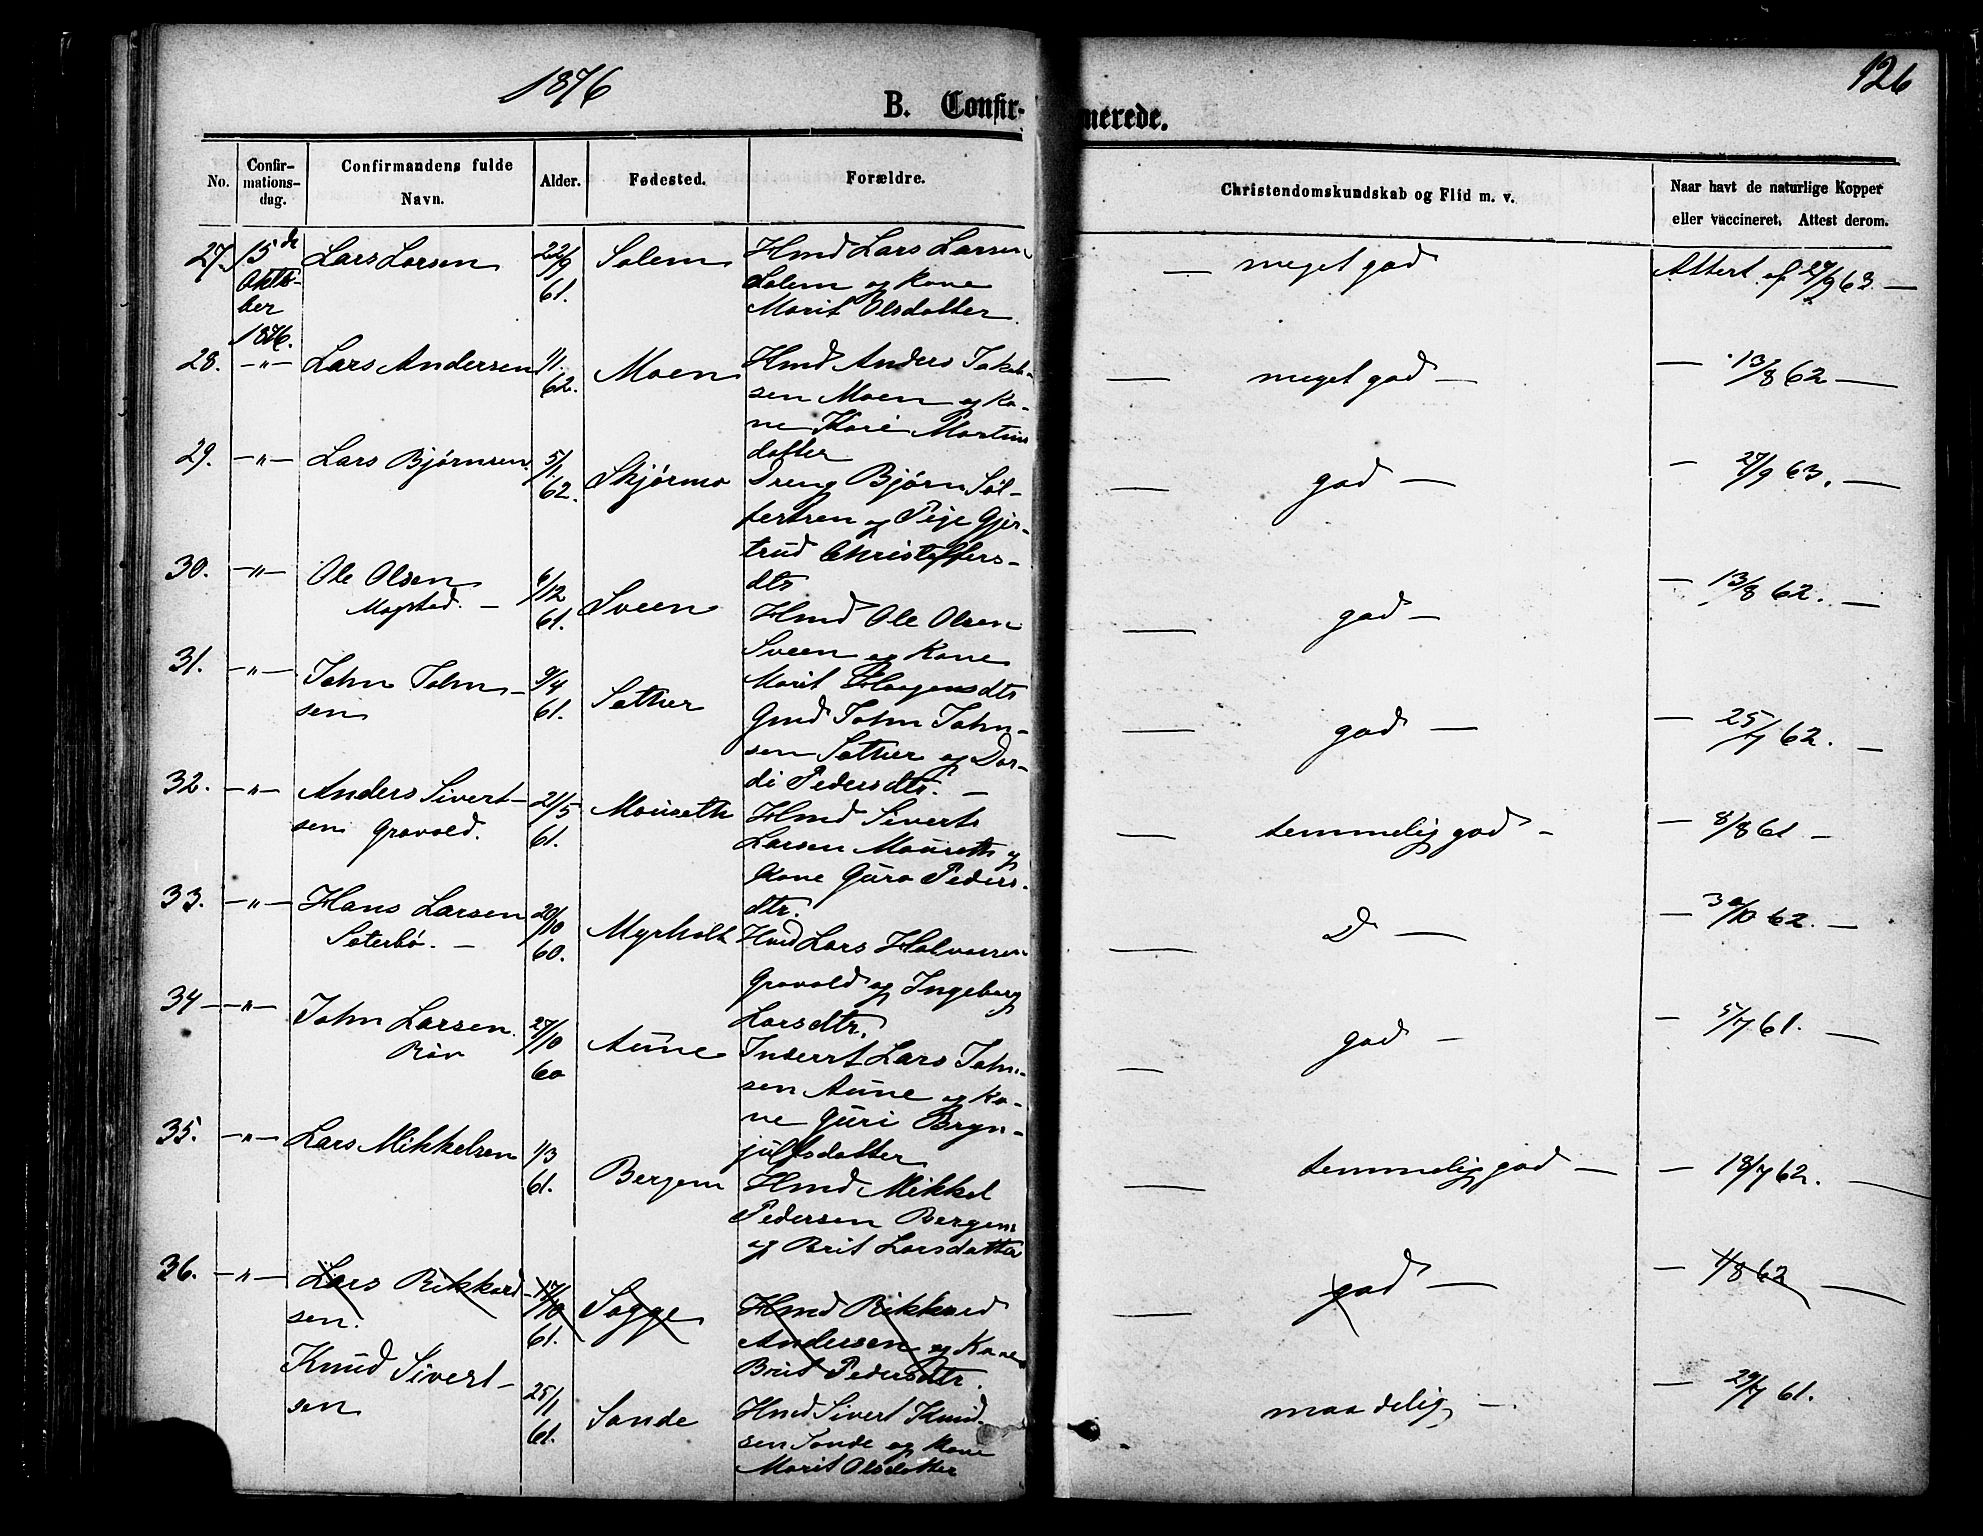 1876
126
B. Confirmerede.
No. | Confirmationsdag. | Confirmandens fulde Navn. | Alder. | Fødested. | Forældre. | Christendomskundskab og Flid m. v. | Naar havt de naturlige Kopper eller vaccineret. Attest derom.
27. 15de Lars Larsen 22/9 Solem Hmd Lars Larsen — meget god Attest af 27/9 63. —
Oktober 61. Solem og Kone
1876. Marit Olsdatter.
28. —"— Lars Andersen 1/1 Moen Hmd Anders Jakob- — meget god — — 13/8 62 —
62. sen Moen og Ko-
ne Kari Martins
datter
29. —"— Lars Bjørnsen 5/1 Skjørmo Dreng Bjørn Søl- — god — — 27/9 63. —
62. festsen og Pige Gjer-
trud Christoffers-
dtr
30. —"— Ole Olsen 6/12 Sveen Hmd Ole Olsen — god — — 13/8 62. —
Mogstad. — 61. Sveen og Kone
Marit Haagensdtr
31. —"— John John- 9/4 Sæther Gmd John John- — god — — 25/7 62. —
sen 61. sen Sæther og Dor-
di Pedersdtr. —
32. —"— Anders Sivert- 21/5 Mauseth Hmd Sivert — temmelig god — — 8/8 61 —
sen Gravold. 61. Larsen Mauseth og
Kone Guro Peders-
dtr.
33. —"— Hans Larsen 20/10 Myrholt Lars Halvorsen — D — — 30/10 62. —
Sæterbø. — 60. Gravold og Ingeborg
Larsdtr.
34 — —"— John Larsen 27/10 Aune Inderst Lars John- — god — — 5/7 61. —
Røv 60 sen Aune og Ko-
ne Guri Bryn-
julfsdatter
35. —"— Lars Mikkelsen 1/3 Bergem Hmd Mikkel — temmelig god — — 18/7 62. —
61. Pedersen Bergem
og Brit Larsdatter
36. —"— Lars Rikkard- 17/10 Sogge Hmd Rikkard — god — — 4/8 62 —
sen. 61. Andersen og Kone
Brit Pedersdtr.
Knud Sivert- 25/1 Sande Hmd Sivert Knud- maadelig — — 29/7 61.
sen 61. sen Sande og Kone
Marit Olsdatter